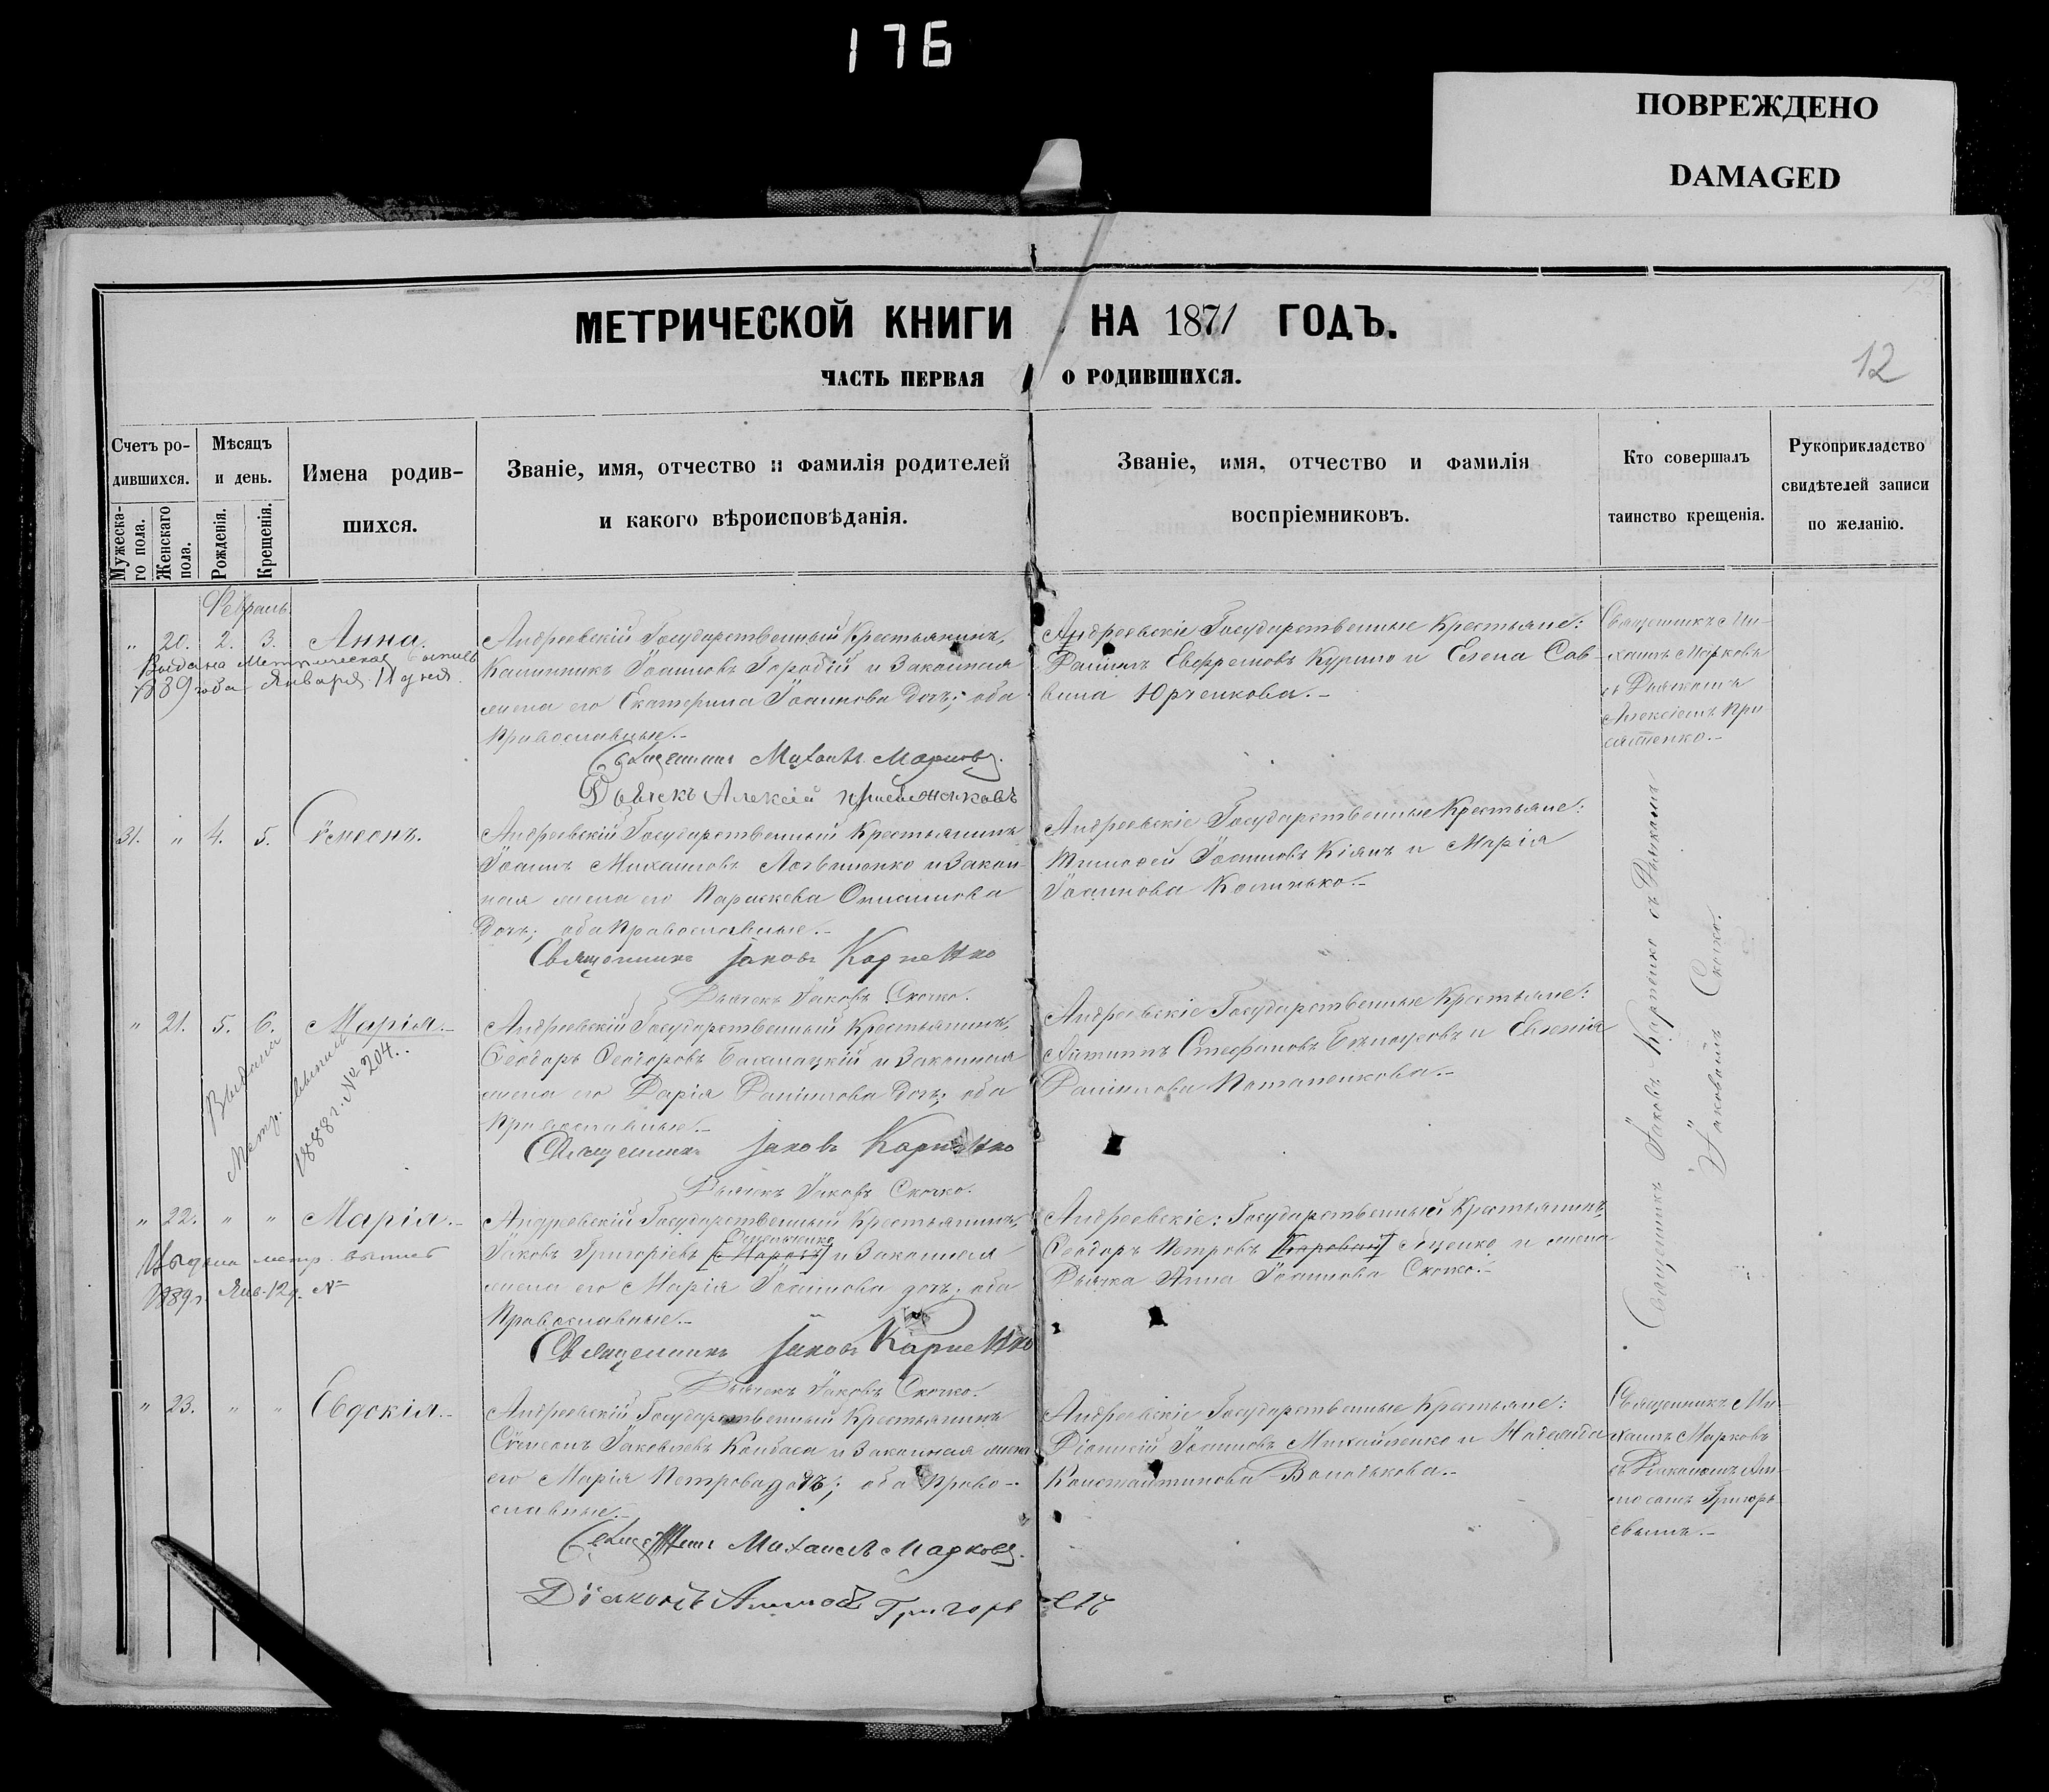 176
ПОВРЕЖДЕНО
DAMAGED
МЕТРИЧЕСКОЙ КНИГИ НА 1871 ГОДЪ.
ЧАСТЬ ПЕРВАЯ О РОДИВШИХСЯ.
12
Счетъ ро-
дившихся.
Мужеска-
го пола.
Женскаго
пола.
Мѣсяцъ
и день.
Рожденія.
Крещенія.
Имена родив-
шихся.
Званіе, имя, отчество и фамилія родителей
и какого вѣроисповѣданія.
Званіе, имя, отчество и фамилія
воспріемниковъ.
Кто совершалъ
таинство крещенія.
Рукоприкладство
свидѣтелей записи
по желанію.
Февраль.
" 20. 2. 3. Анна.
Выдана Метрическая выпись
1889 года Января 11 дня
Андреевскій Государственный Крестьянинъ,
Іоанновъ и Законная
жена его Екатерина Іоаннова дочь; оба
Православные.-
Священникъ Михаилъ Марковъ.
Дьячекъ Алексій
Андреевскіе Государственные Крестьяне:
Даніилъ Евфремовъ Курило и Елена Сав-
вина Юрченкова.-
Священникъ Ми-
хаилъ Марковъ
съ Дьячкомъ
Алексіемъ При
31. " 4. 5. Сѵмеонъ.
Андреевскій Государственный Крестьянинъ
Іоаннъ Михаиловъ Логвиненко и Закон-
ная жена его Параскева
дочь; оба Православные.-
Священникъ Іаковъ Карпенко
Дьячекъ Іаковъ Скочко.
Андреевскіе Государственные Крестьяне:
Тимофей Іоанновъ Кіянъ и Марія
Іоаннова
Священникъ Іаковъ Карпенко съ Дьячкомъ
Іаковомъ Скочко.
" 21. 5. 6. Марія.-
Выдана
Метр. выпись
1888 г. № 204.
Андреевскій Государственный Крестьянинъ,
Ѳеодоръ Ѳеодоровъ Бахмацкій и Законная
жена его Дарія Даніилова дочь; оба
Православные.-
Священникъ Іаковъ Карпенко
Дьячекъ Іаковъ Скочко.
Андреевскіе Государственные Крестьяне:
Стефановъ Бѣлоусовъ и Евгенія
Даніилова Потапенкова.-
" 22. " " Марія.-
Выдана метр. выпись
1889 г. Янв. 12 д. №
Андреевскій Государственный Крестьянинъ,
Іаковъ Григоріевъ и Законная
жена его Марія Іоаннова дочь; оба
Православные.-
Священникъ Іаковъ Карпенко
Дьячекъ Іаковъ Скочко.
Андреевскіе: Государственный Крестьянинъ,
Ѳеодоръ Петровъ Яценко и жена
Дьячка Анна Іоаннова Скочко.-
" 23. " " Евдокія.-
Андреевскій Государственный Крестьянинъ
Сѵмеонъ Іаковлевъ Колбаса и Законная жена
его Марія Петрова дочь; оба Право-
славные.-
Священникъ Михаилъ Марковъ.
Діаконъ Аммосъ Григорьевъ
Андреевскіе Государственные Крестьяне:
Діонисій Іоанновъ Михайленко и Наталія
Константинова Володькова.-
Священникъ Ми-
хаилъ Марковъ
съ Діакономъ Ам-
мосомъ Григорь-
евымъ.-